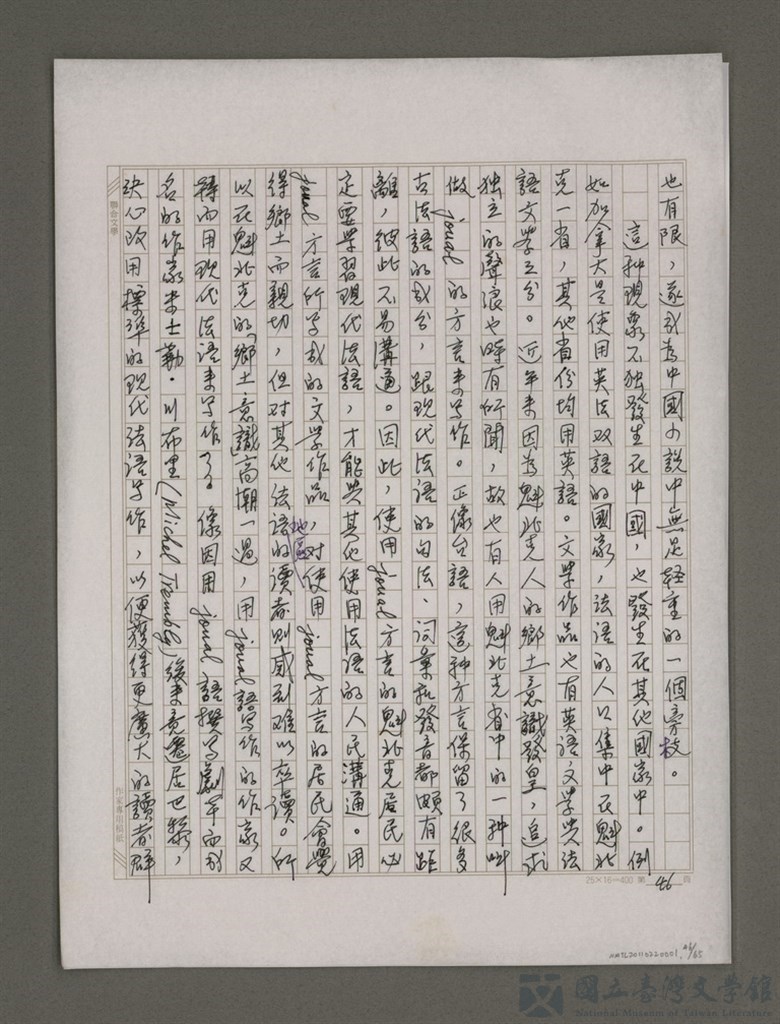 也有限，遂成為中國小說中無足輕重的一個旁枝。
這種現象不独發生在中國，也發生在其他國家中。例
如加拿大是使用英法双語的國家，法語的人口集中在魁北
克一省，其他省份均用英語。文學作品也有英語文學與法
語文學之分。近年來因為魁北克人的鄉土意識發皇，追求
独立的聲浪也時有所聞，故也有人用魁北克省中的一種叫
做 joual 的方言來寫作。正像台語，這种方言保留了很多
古法語的成分，跟現代法語的句法、詞彙和發音都頗有距
離，彼此不易溝通。因此，使用 joual 方言的魁北克居民必
定要學習現代法語，才能與其他使用法語的人民溝通。用
joual 方言所寫成的文學作品，对使用 joual 方言的居民會覺
得鄉土而親切，但对其他法語地區的讀者則感到难以卒讀。所
以在魁北克的鄉土意識高潮一過，用 joual 語寫作的作家又
轉而用現代法語來寫作了。像因用 joual 語撰寫劇本而成
名的作家米士勒·川布里 (Michel Trembly) 後來竟遷居巴黎，
决心改用標準的現代法語寫作，以便獲得更廣大的讀者群
聯合文學
作家專用稿紙
25×16=400 第 46 頁
NMTL20110220001 46/65
國立臺灣文學館
National Museum of Taiwan Literature